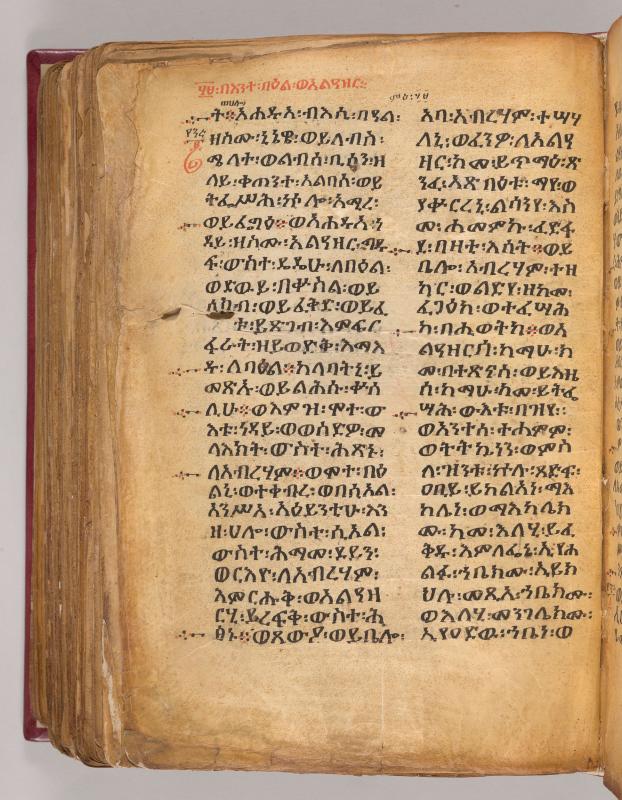 በእንተ፡በዕል፡ወአልዓዛር፡፡
ት፡አሐዱ፡ብእሲ፡በዓል፡
ዘስሙ፡ኒኔዌ፡ወይለብስ፡
ሜላተ፡ወልብሰ፡ቢሶን፡ዘ
ላይ፡ቀጠንተ፡አልባስ፡ወይ
ትፌሥሕ፡ኵሎ፡አሚረ፡
ወይፈግዕ፡ወአሐዱ፡ነ
ዳይ፡ዘስሙ፡አልዓዛር፡ግዱ
ፍ፡ውስተ፡ዴዴሁ፡ለበዕል፡
ወድዉይ፡በቍስል፡ወይ
ት፡ይጽገብ፡እምፍር
ፈራት፡ዘይወድቅ፡እማእ
ዱ፡ለባዕል፡ከላባትኒ፡ይ
መጽኡ፡ወይልሕሱ፡ቍሰ
ሊሁ፡ወእምዝ፡ሞተ፡ው
እቱ፡ነዳይ፡ወወሰድዎ፡መ
ላእክት፡ውስተ፡ሕጽኑ፡
ለአብረሃም፡ወሞተ፡በዕ
ልኒ፡ወተቀብረ፡ወበሲኦል፡
አንሥአ፡አዕይንቲሁ፡እን
ዘ፡ሀሎ፡ውስተ፡ሲኦል፡
ውስተ፡ሕማመ፡ደይን፡
ወርእዮ፡ለአብረሃም፡
እምርሑቅ፡ወአልዓዛ
ርሃ፡ይረፍቅ፡ውስተ፡ሕ
ፅኑ፡ወጸውዖ፡ወይቤሎ፡
አባ፡አብረሃም፡ተሣሃ
ለኒ፡ወፈንዎ፡ለአልዓ
ዛር፡ከመ፡ይጥማዕ፡ጽ
ንፈ፡አጽባዕቱ፡ማየ፡ወ
ያቍርረኒ፡ልሳንየ፡እስ
መ፡ሐመምኩ፡ፈድፋ
ደ፡በዛቲ፡እሳት፡ወይ
ቤሎ፡አብረሃም፡ተዘ
ካር፡ወልድየ፡ዘከመ፡
ፈጋዕከ፡ወተፈሣሕ
ከ፡በሕይወትከ፡ወአ
ልዓዛርሂ፡ከማሁ፡ከ
መ፡በተጽናሰ፡ወይእዜ
ሰ፡ከማሁ፡ከመ፡ይትፌ
ሣሕ፡ውእቱ፡በዝየ፡፡
ወአንተሰ፡ተሐምም፡
ወትትኴነን፡ወምስ
ለ፡ዝንቱ፡ኵሉ፡ጸድፍ፡
ዐቢይ፡ይከልእነ፡ማእ
ከሌነ፡ወማእከሌክ
ሙ፡ከመ፡እለሂ፡ይፈ
ቅዱ፡እምለፌኒ፡ኢየሐ
ልፉ፡ኀቤክሙ፡ኢይክ
ህሉ፡መጺአ፡ኀቤክሙ፡
ወእለሂ፡መንገሌክሙ፡
ኢየዐድዉ፡ኀቤነ፡ወ